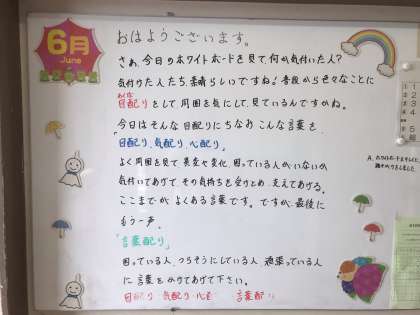 6月
June
おはようございます。
さぁ、今日のホワイトボードを見て何か気付いた人?
気付けた人たち、素晴らしいですね!普段から色々なことに
目配りをして、周囲を気にして、見ているんですかね。
今日はそんな目配りにちなみこんな言葉を
「目配り、気配り、心配り。」
よく周囲を見て異変や変化、困っている人がいないか
気付いてあげて、その気持ちを受けとめ、支えてあげる。
ここまでがよくある言葉です。ですが、最後に
もう一声。
「言葉配り」
困っている人、つらそうにしている人、頑張っている人
に言葉をかけてあげて下さい。
目配り・気配り・心 言葉配